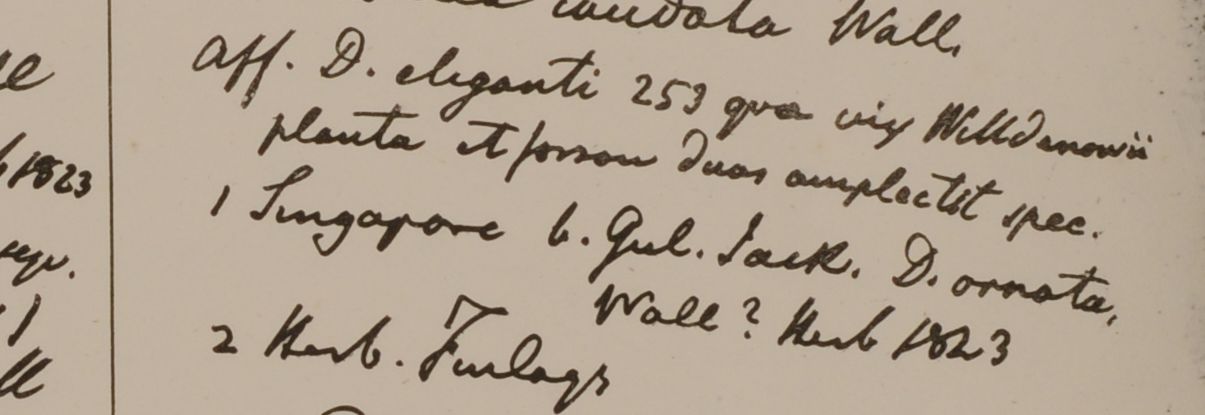 caudata Wall.
Aff. D. eleganti 253 quæ vix Willdenowii
planta et forsan duas amplectit spec.
1 Singapore b. Gul. Jack. D. ornata,
Wall? Herb 1823
2 Herb. Finlays
1823